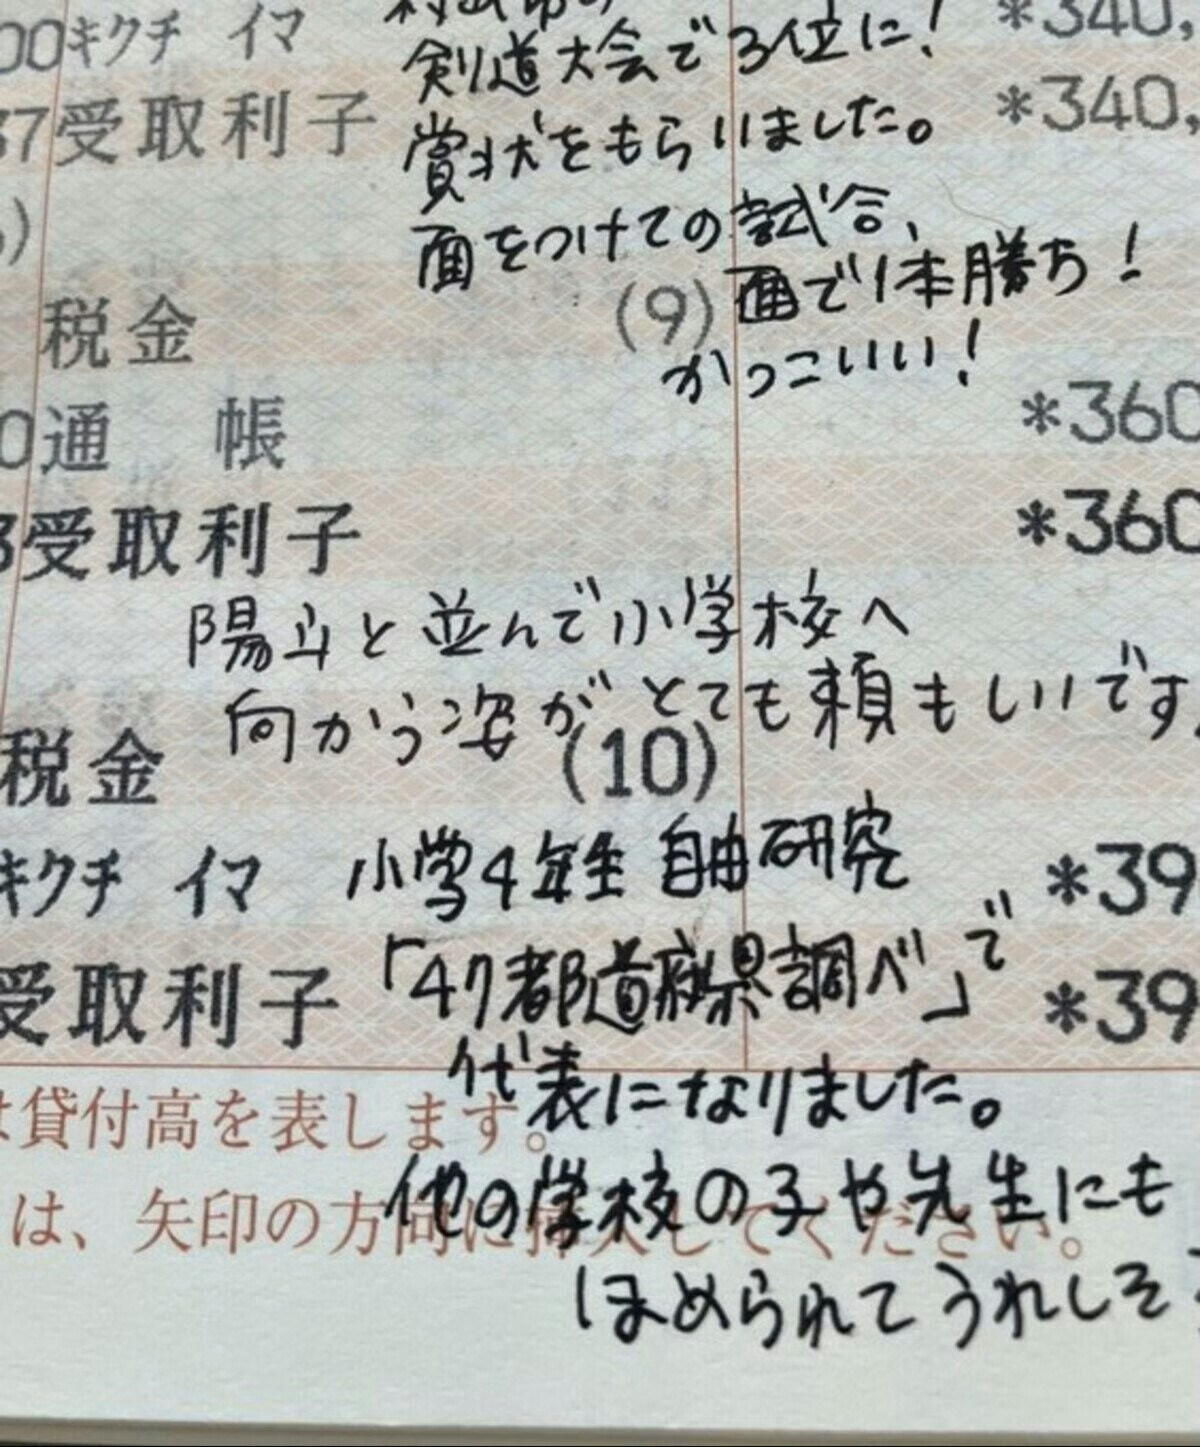 00キクチ イマ *340,
剣道大会で3位に!
37受取利子 *340,
賞状をもらいました。
面をつけての試合、
面で1本勝ち!
税金 (9)
かっこいい!
0通 帳 *360
3受取利子 *360
陽斗と並んで小学校へ
向かう姿がとても頼もしいです。
税金 (10)
キクチ イマ *39
小学4年生 自由研究
受取利子 *39
「47都道府県調べ」で
代表になりました。
は貸付高を表します。
他の学校の子や先生にも
は、矢印の方向に挿入してください。
ほめられてうれしそ